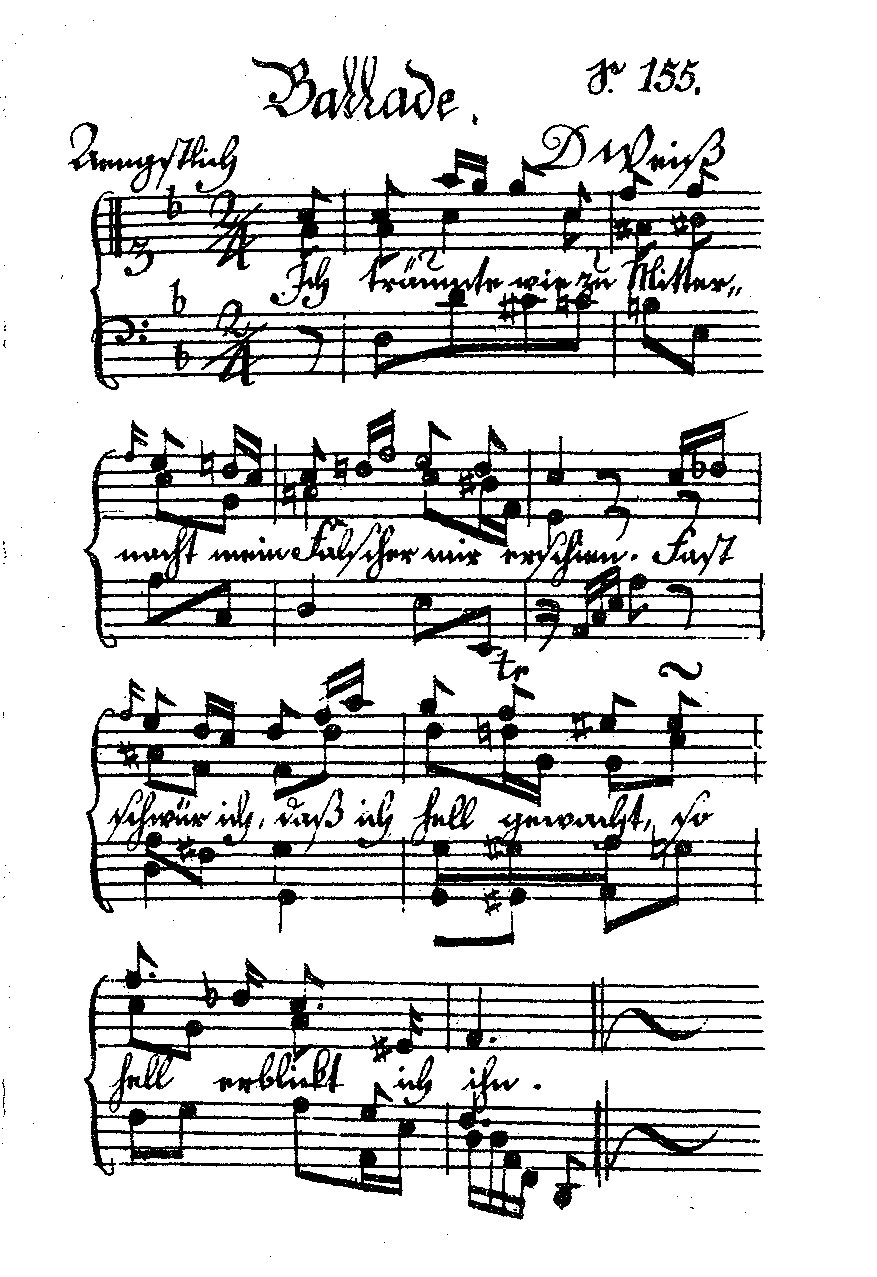 Ballade.
S. 155.
Aengstlich
D Weiß
Ich träumte wie zu Mitter„
nacht mein Falscher mir erschien. Fast
tr
schwür ich, daß ich hell gewacht, so
hell erblickt ich ihn.